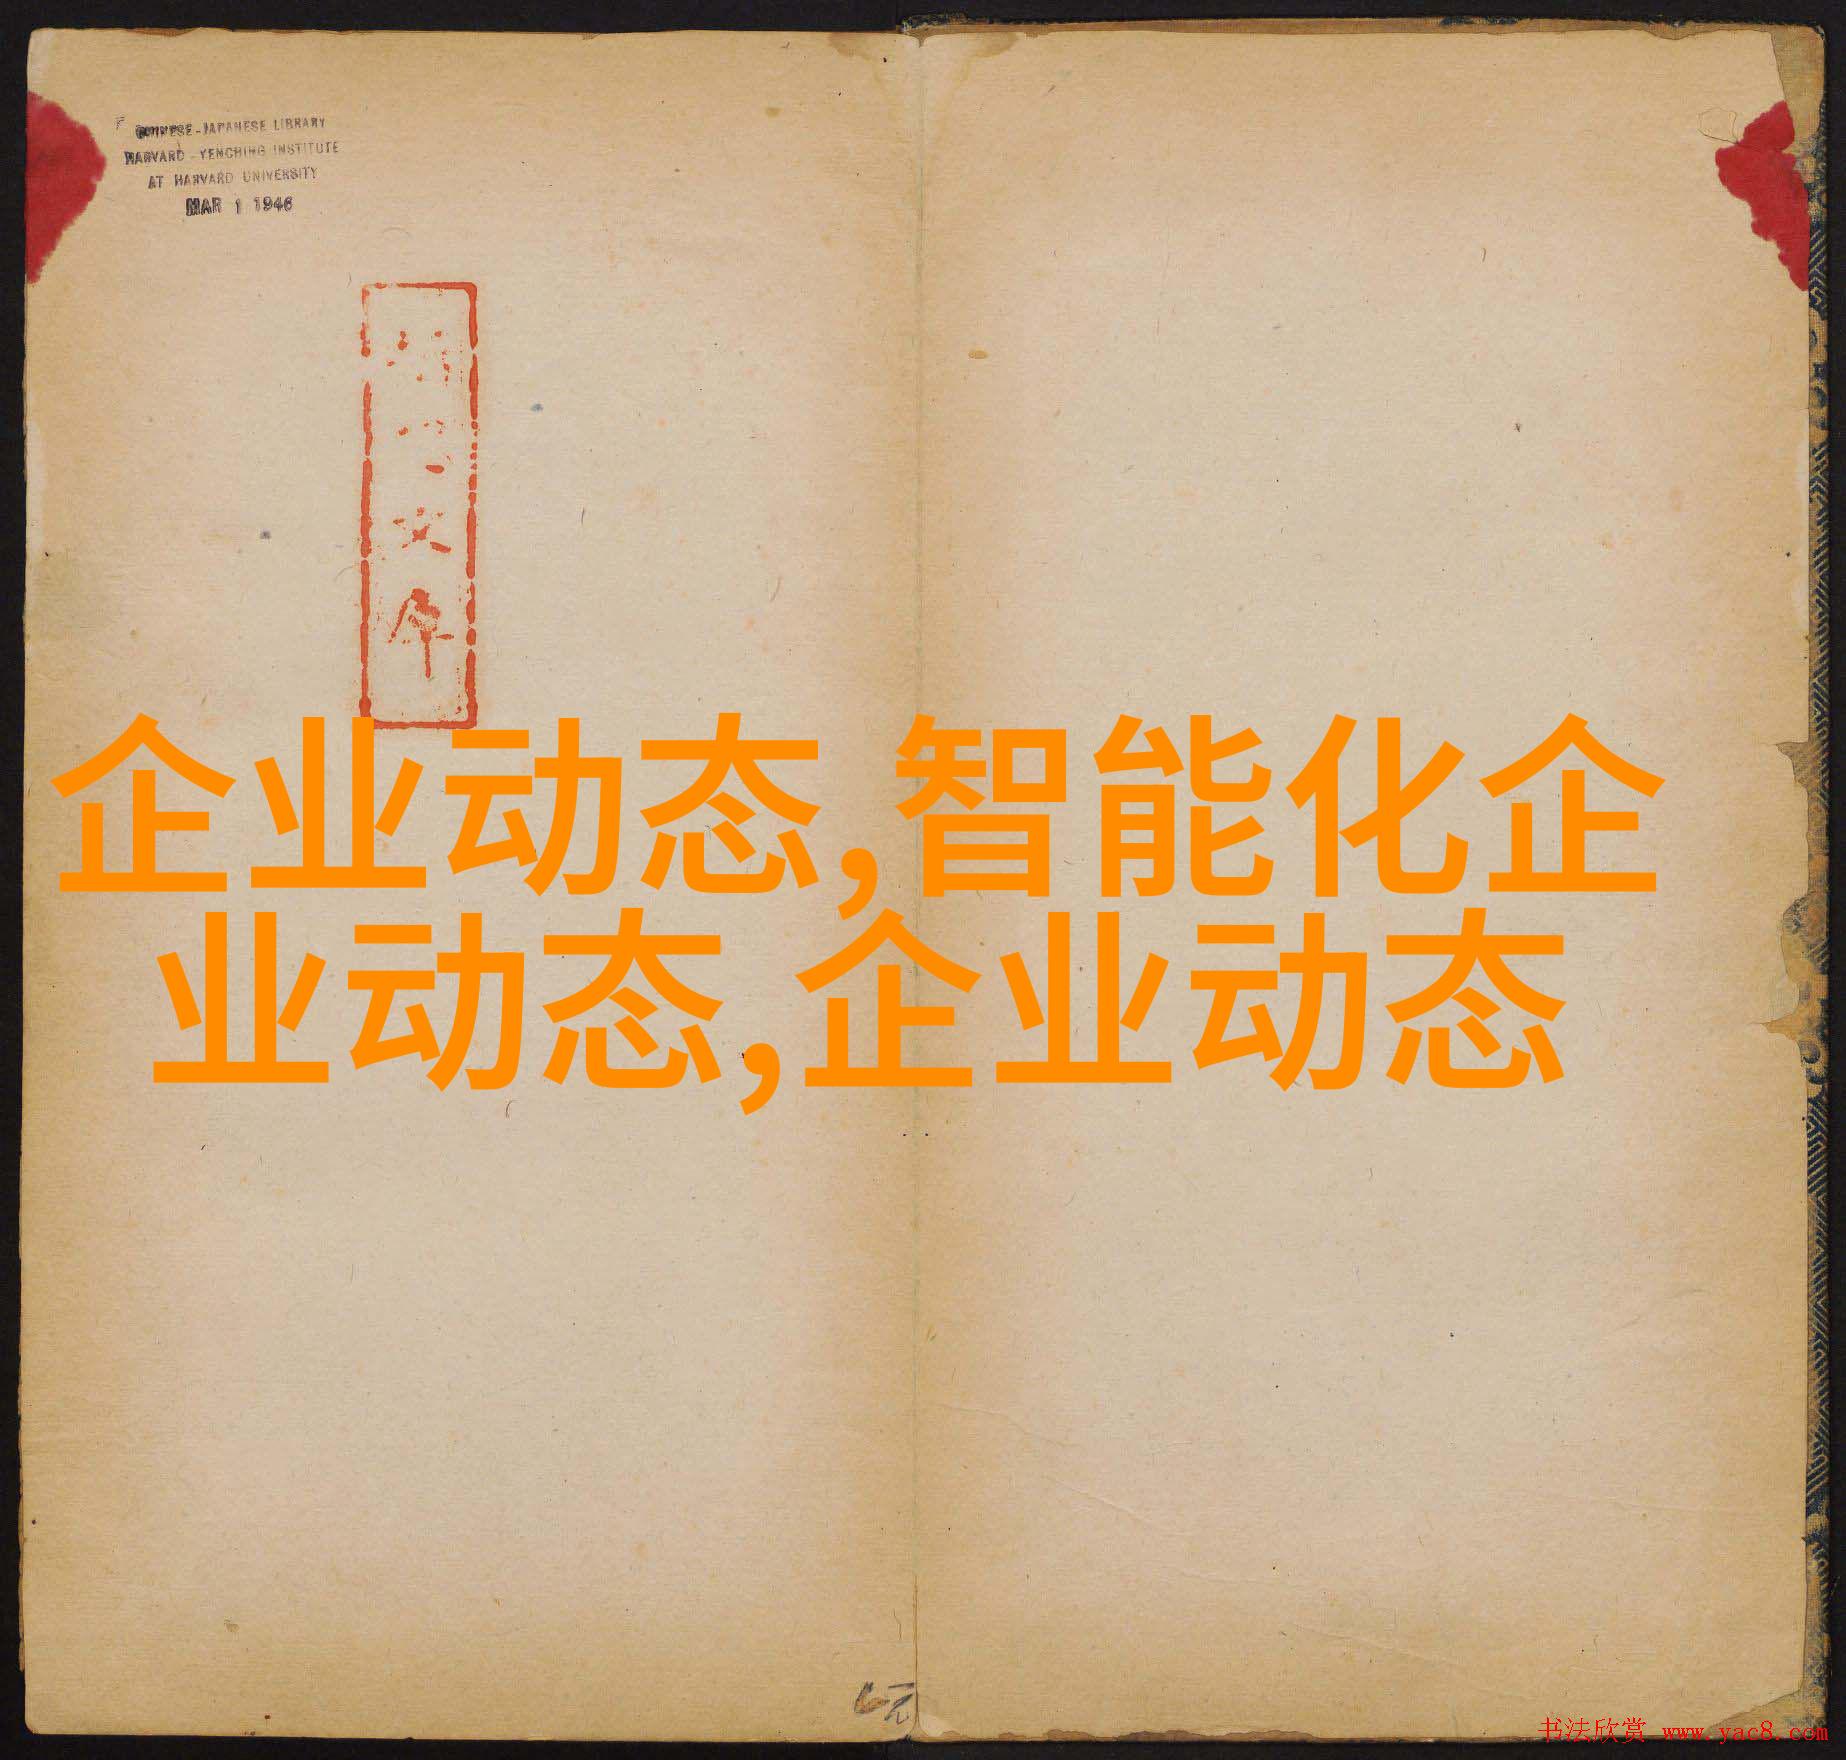 CHINESE-JAPANESE LIBRARY
HARVARD-YENCHING INSTITUTE
AT HARVARD UNIVERSITY
MAR 1 1946
企业动态,智能化企
业动态,企业动态
6元
书法欣赏 www.yac8.com